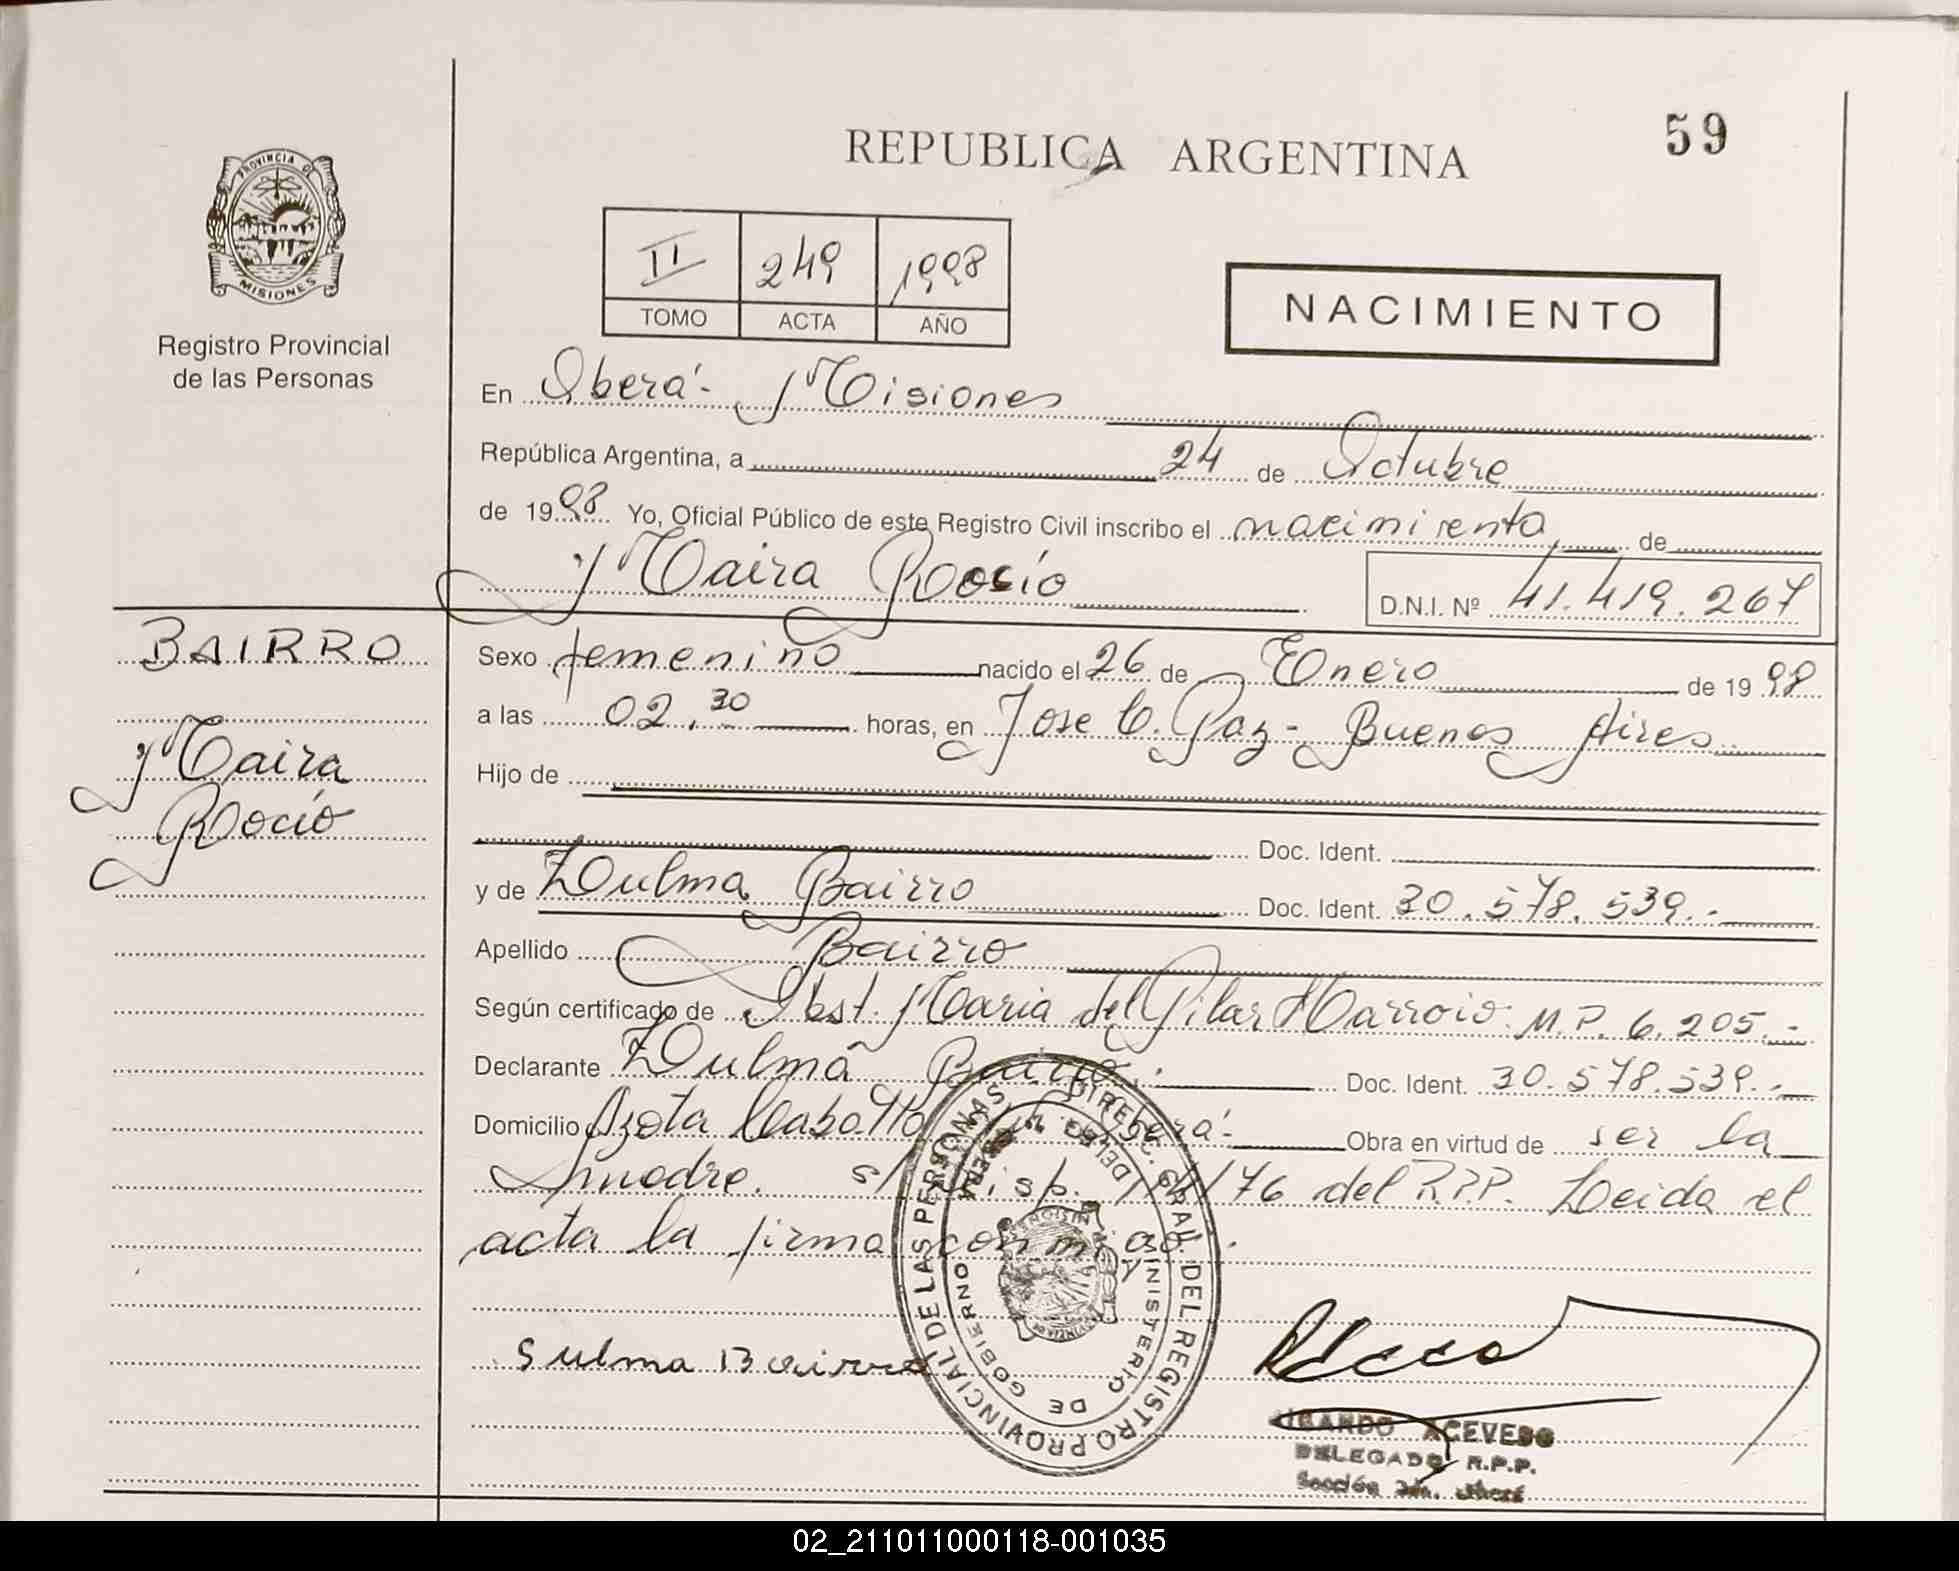 59
REPUBLICA ARGENTINA
PROVINCIA DE
MISIONES
Registro Provincial
de las Personas
II 249 1998
TOMO ACTA AÑO
NACIMIENTO
En Oberá - Misiones
República Argentina, a 24 de Octubre
de 1998 Yo, Oficial Público de este Registro Civil inscribo el nacimiento de
Maira Rocío
D.N.I. Nº 41.419.267
BAIRRO
Maira
Rocío
Sexo femenino nacido el 26 de Enero de 1998
a las 02,30 horas, en Jose C. Paz - Buenos Aires
Hijo de
Doc. Ident.
y de Zulma Bairro Doc. Ident. 30.578.539.-
Apellido Bairro
Según certificado de Obst. Maria del Pilar Marroio M.P. 6.205.-
Declarante Zulma Bairro. Doc. Ident. 30.578.539.-
Domicilio Azota Obra en virtud de ser la
madre. s/ Disp. /76 del R.P.P. Leida el
acta la firma conmigo.
Sulma Bairro
DIREC. GRAL. DEL REGISTRO PROVINCIAL DE LAS PERSONAS
MINISTERIO DE GOBIERNO
ACEVEDO
DELEGADO R.P.P.
Sección
02_211011000118-001035